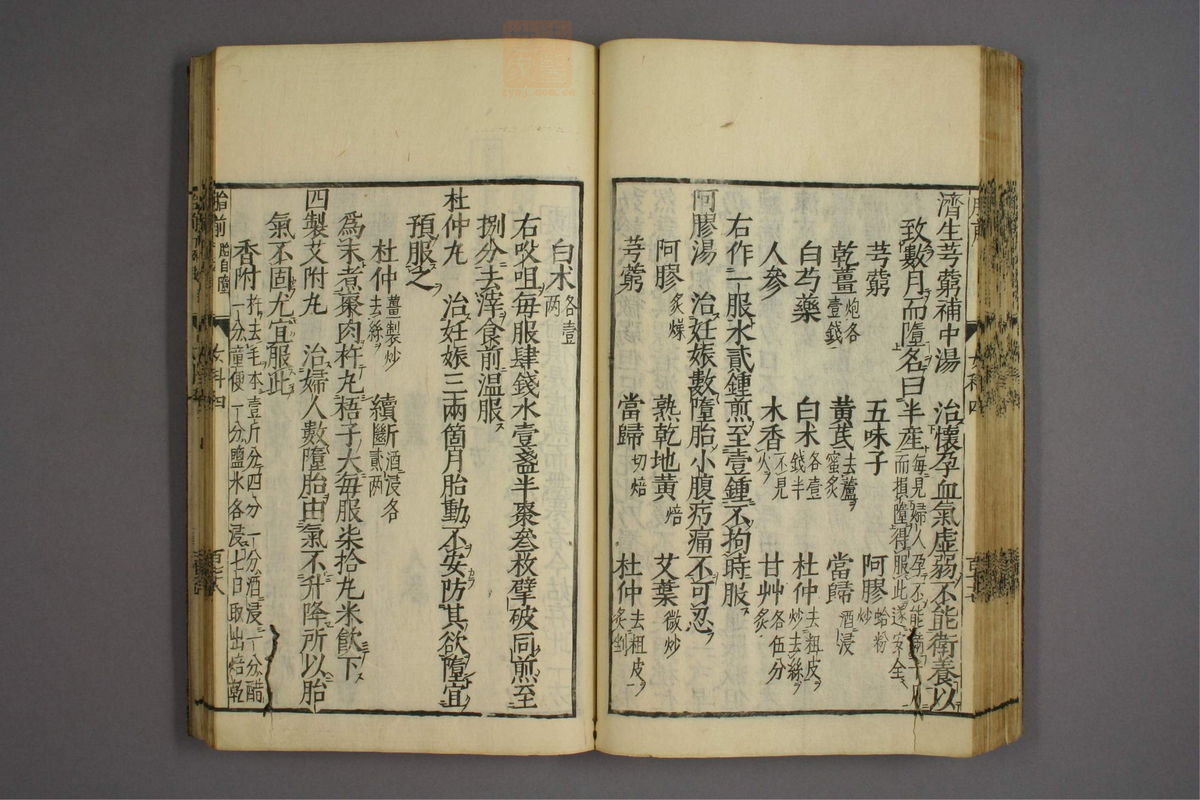 濟生芎藭補中湯 治懷孕血氣虛弱不能衛養以
致數月而墮名曰半産 每見婦人孕不能滿十月而損墮得服此遂安全
芎藭 五味子 阿膠 蛤粉炒
乾薑 炮各壹錢 黃芪 去蘆蜜炙 當歸 酒浸
白芍藥 白术 各壹錢半 杜仲 去粗皮炒去絲
人參 木香 不見火 甘艸 各伍分炙
右作一服水貳鍾煎至壹鍾不拘時服
阿膠湯 治妊娠數墮胎小腹㽲痛不可忍
阿膠 炙燥 熟乾地黃 焙 艾葉 微炒
芎藭 當歸 切焙 杜仲 去粗皮炙剉
白术 各壹两
右㕮咀每服肆錢水壹盞半棗叁枚擘破同煎至
捌分去滓食前温服
杜仲丸 治妊娠三兩箇月胎動不安防其欲墮宜
預服之
杜仲 薑製炒去絲 續斷 酒浸各貳两
爲末煮棗肉杵丸梧子大每服柒拾丸米飮下
四製艾附丸 治婦人數墮胎由氣不升降所以胎
氣不固尤宜服此
香附 杵去毛本壹斤分四分一分酒浸一分醋一分童便一分鹽水各浸七日取出焙乾
胎前 胎自墮 女科四
女科四